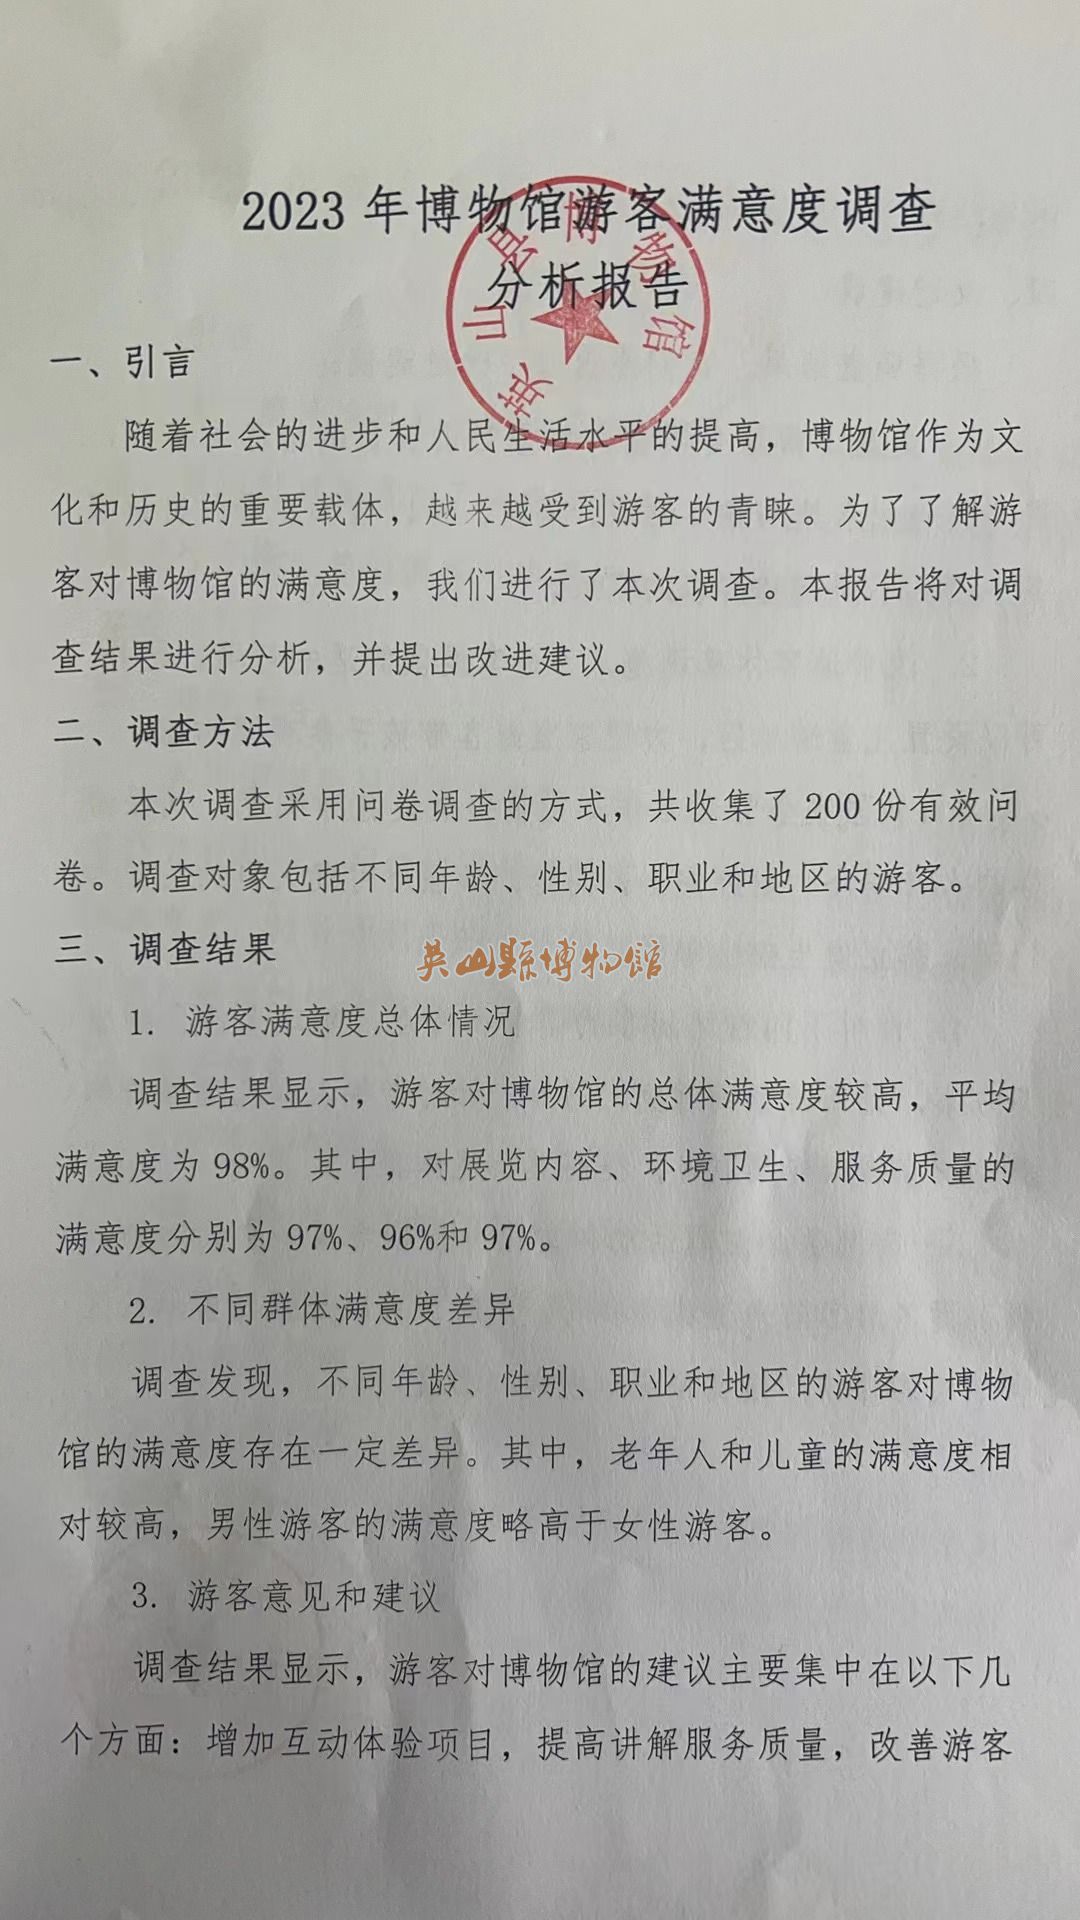 2023年博物馆游客满意度调查
分析报告
英山县博物馆
一、引言
随着社会的进步和人民生活水平的提高，博物馆作为文
化和历史的重要载体，越来越受到游客的青睐。为了了解游
客对博物馆的满意度，我们进行了本次调查。本报告将对调
查结果进行分析，并提出改进建议。
二、调查方法
本次调查采用问卷调查的方式，共收集了200份有效问
卷。调查对象包括不同年龄、性别、职业和地区的游客。
三、调查结果
英山縣博物館
1. 游客满意度总体情况
调查结果显示，游客对博物馆的总体满意度较高，平均
满意度为98%。其中，对展览内容、环境卫生、服务质量的
满意度分别为97%、96%和97%。
2. 不同群体满意度差异
调查发现，不同年龄、性别、职业和地区的游客对博物
馆的满意度存在一定差异。其中，老年人和儿童的满意度相
对较高，男性游客的满意度略高于女性游客。
3. 游客意见和建议
调查结果显示，游客对博物馆的建议主要集中在以下几
个方面：增加互动体验项目，提高讲解服务质量，改善游客